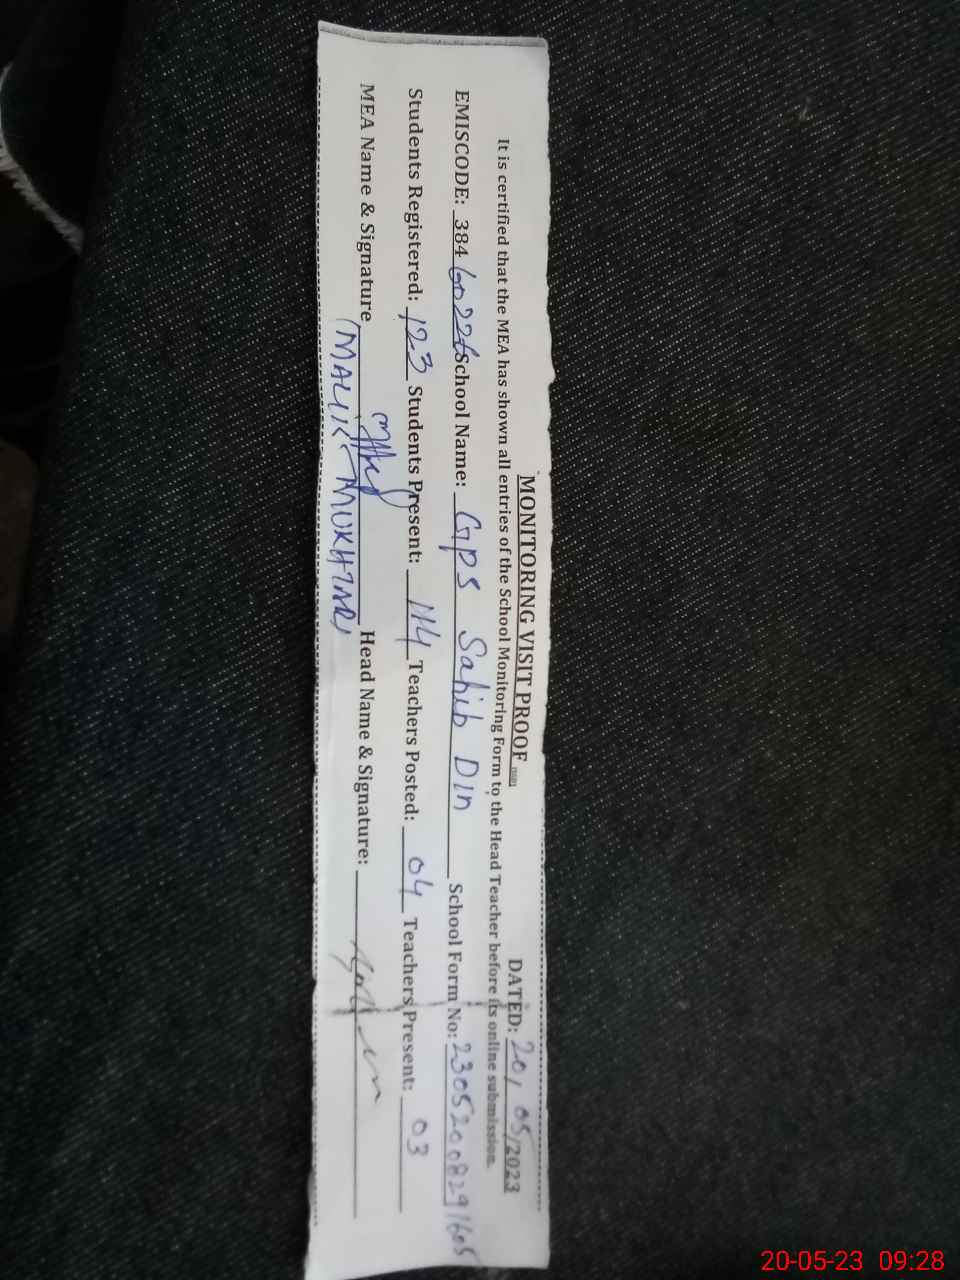 MONITORING VISIT PROOF DATED: 20, 05/2023
It is certified that the MEA has shown all entries of the School Monitoring Form to the Head Teacher before its online submission.
EMISCODE: 38460227 School Name: GPS Sahib Din School Form No: 23052008291605
Students Registered: 123 Students Present: 114 Teachers Posted: 04 Teachers Present: 03
MEA Name & Signature Head Name & Signature:
(MALIK MUKHTAR)
20-05-23 09:28